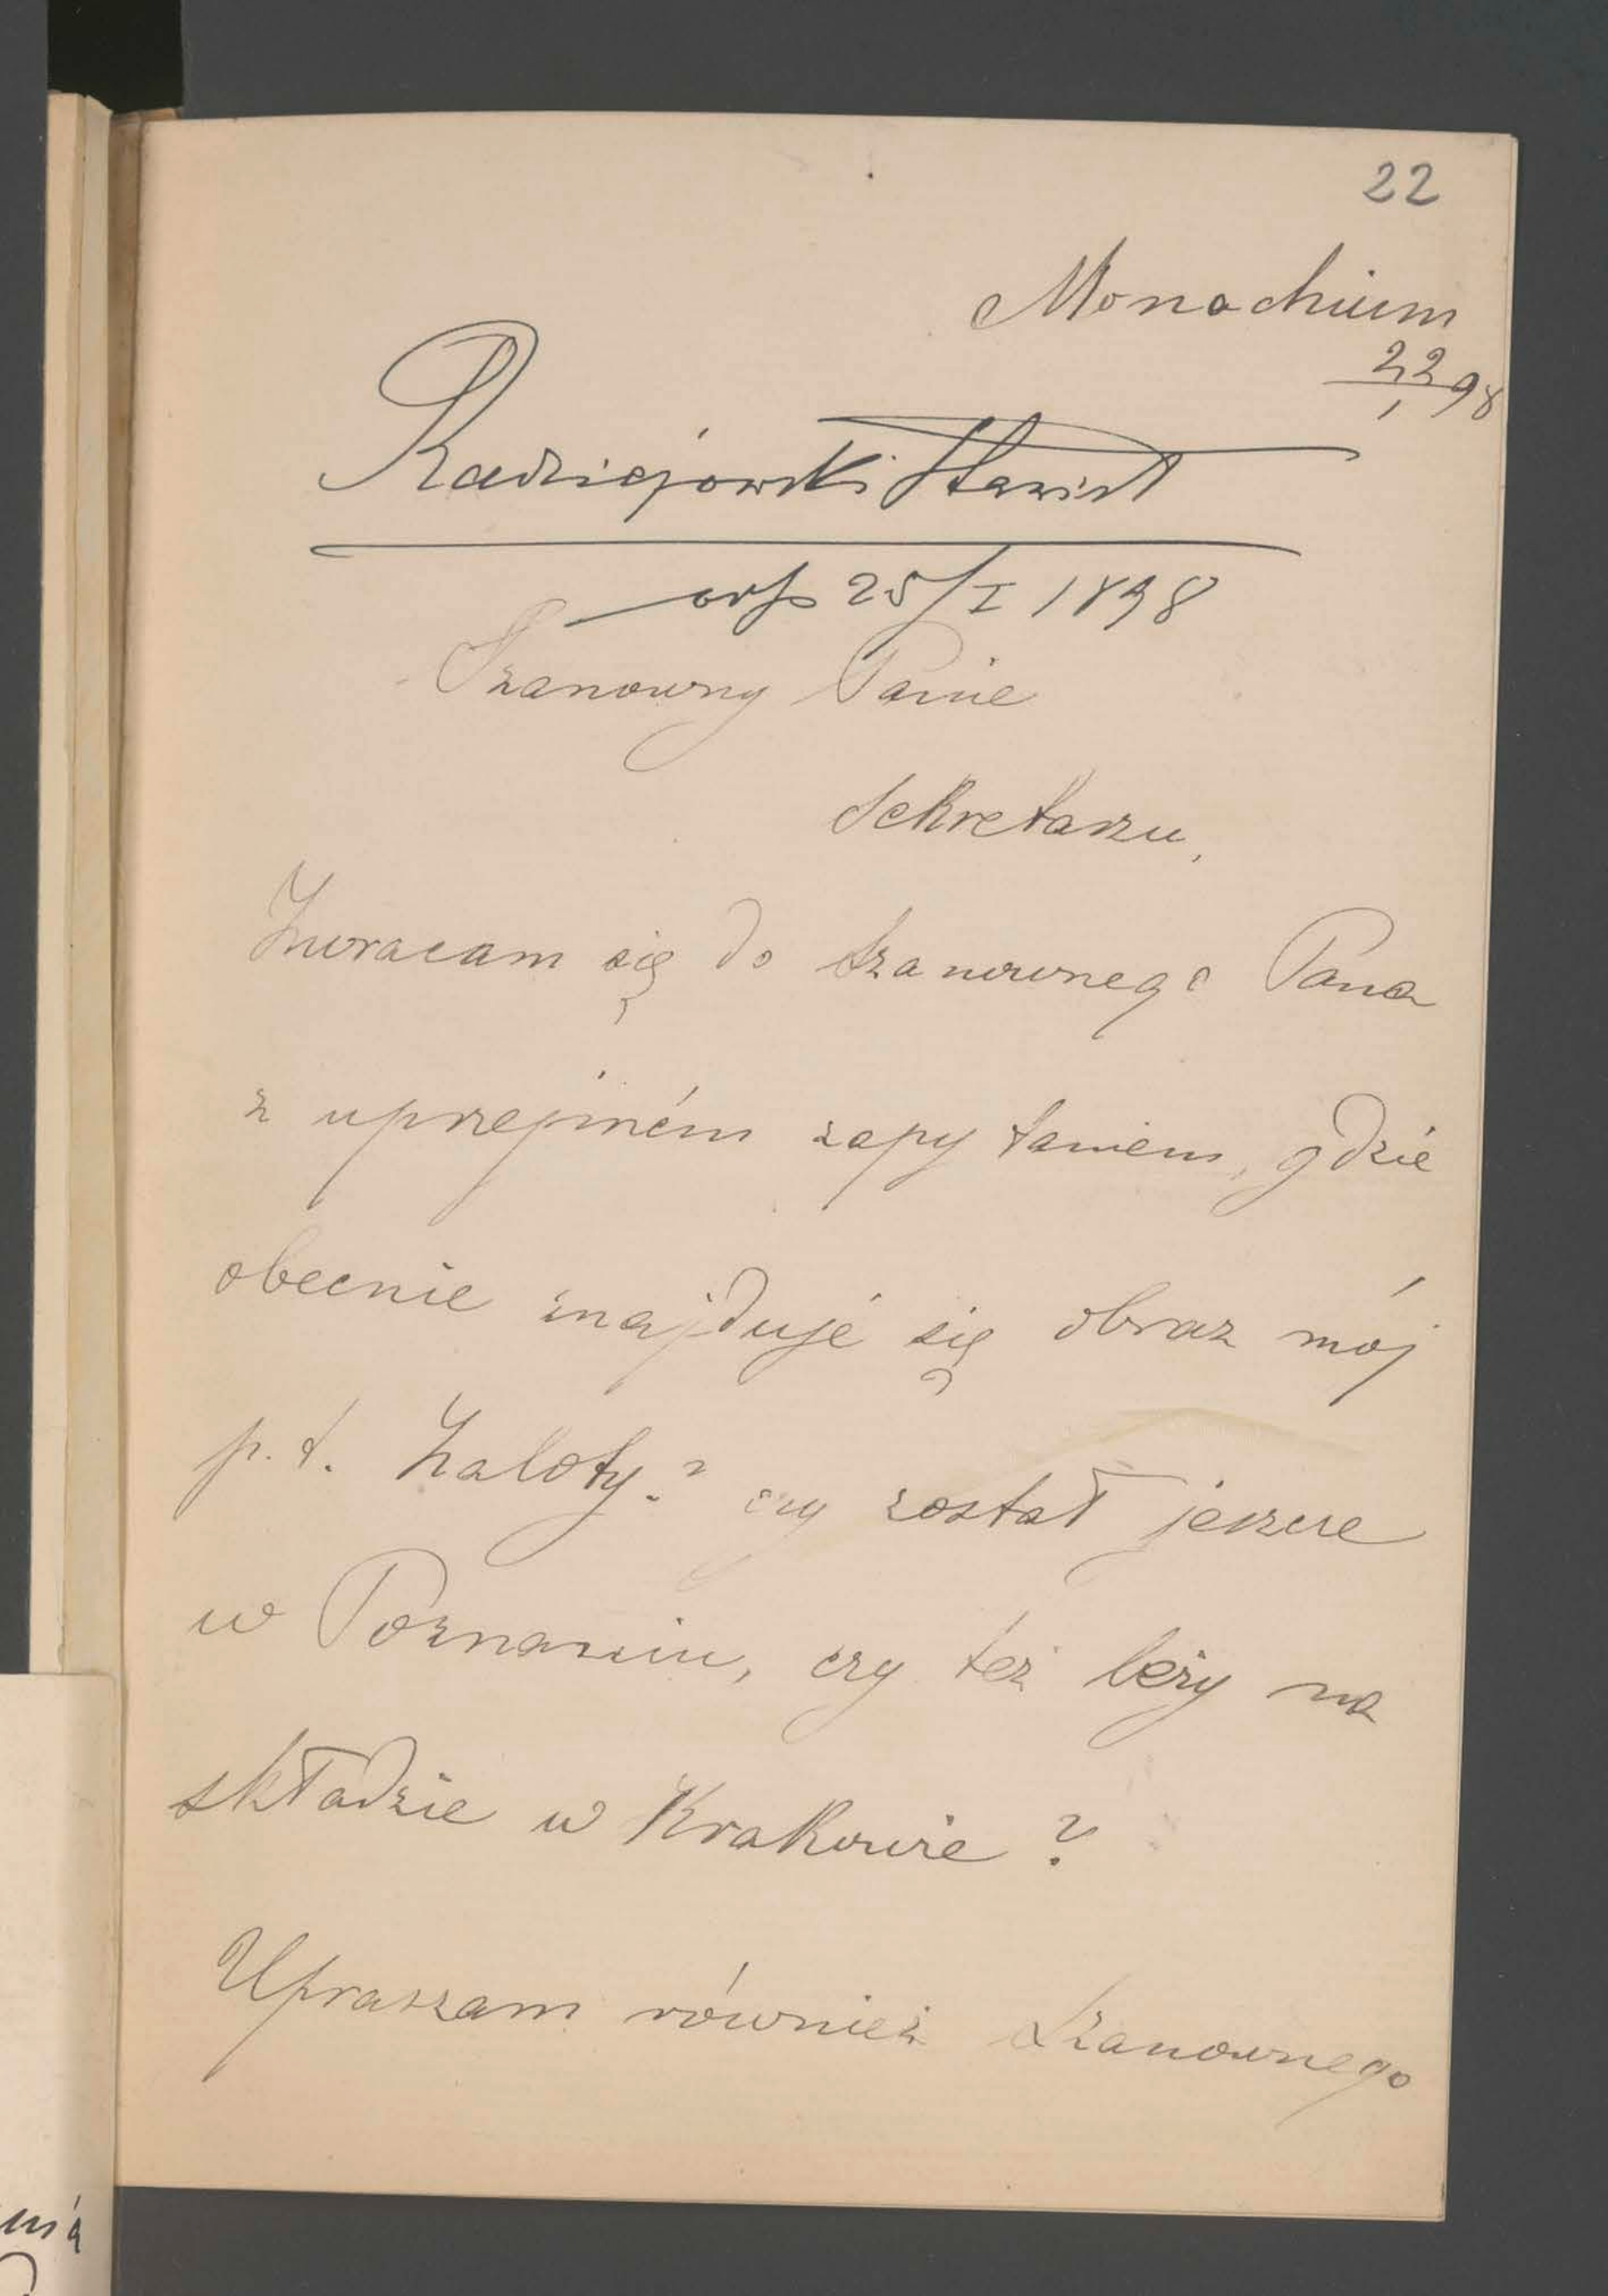 22
Monachium
22/1 98
Radziejowski Stanisł
odp 25/I 1898
Szanowny Panie
Sekretarzu,
Zwracam się do Szanownego Pana
z uprzejmém zapytaniem, gdzie
obecnie znajduje się obraz mój
p. t. Zaloty? czy został jeszcze
w Poznaniu, czy też leży na
składzie w Krakowie?
Upraszam również Szanownego